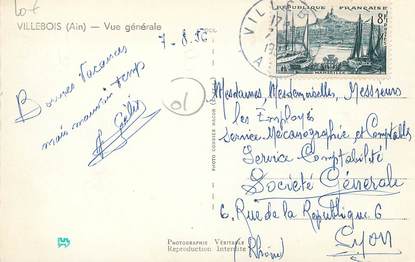 Lot
VILLEBOIS (Ain) — Vue générale
7-8.56
RÉPUBLIQUE FRANÇAISE
8F
VILL
17
A
Bonnes Vacances
mais mauvais temps
Mesdames, Mesdemoiselles, Messieurs
les Employés
Service Mécanographie et Comptable
Service Comptabilité
Société Générale
6, Rue de la République 6
Lyon
(Rhône)
PHOTO COMBIER MACON
Photographie Véritable
Reproduction Interdite